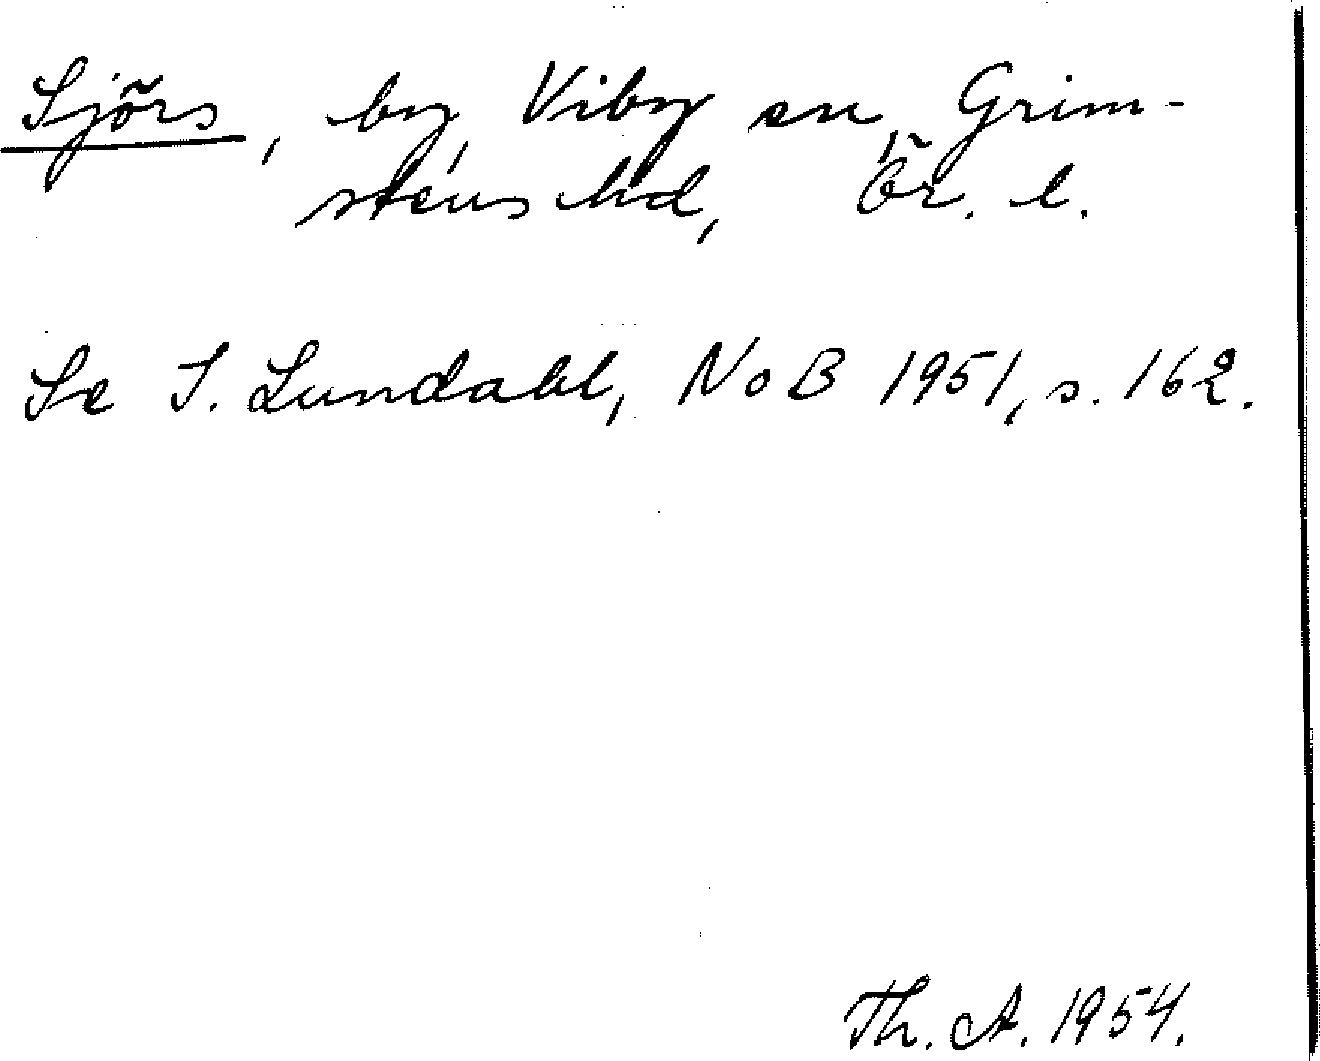 Sjörs, by, Viby sn, Grim-
stens hd, Ör. l.
Se I. Lundahl, NoB 1951, s. 162.
Th. A. 1954.